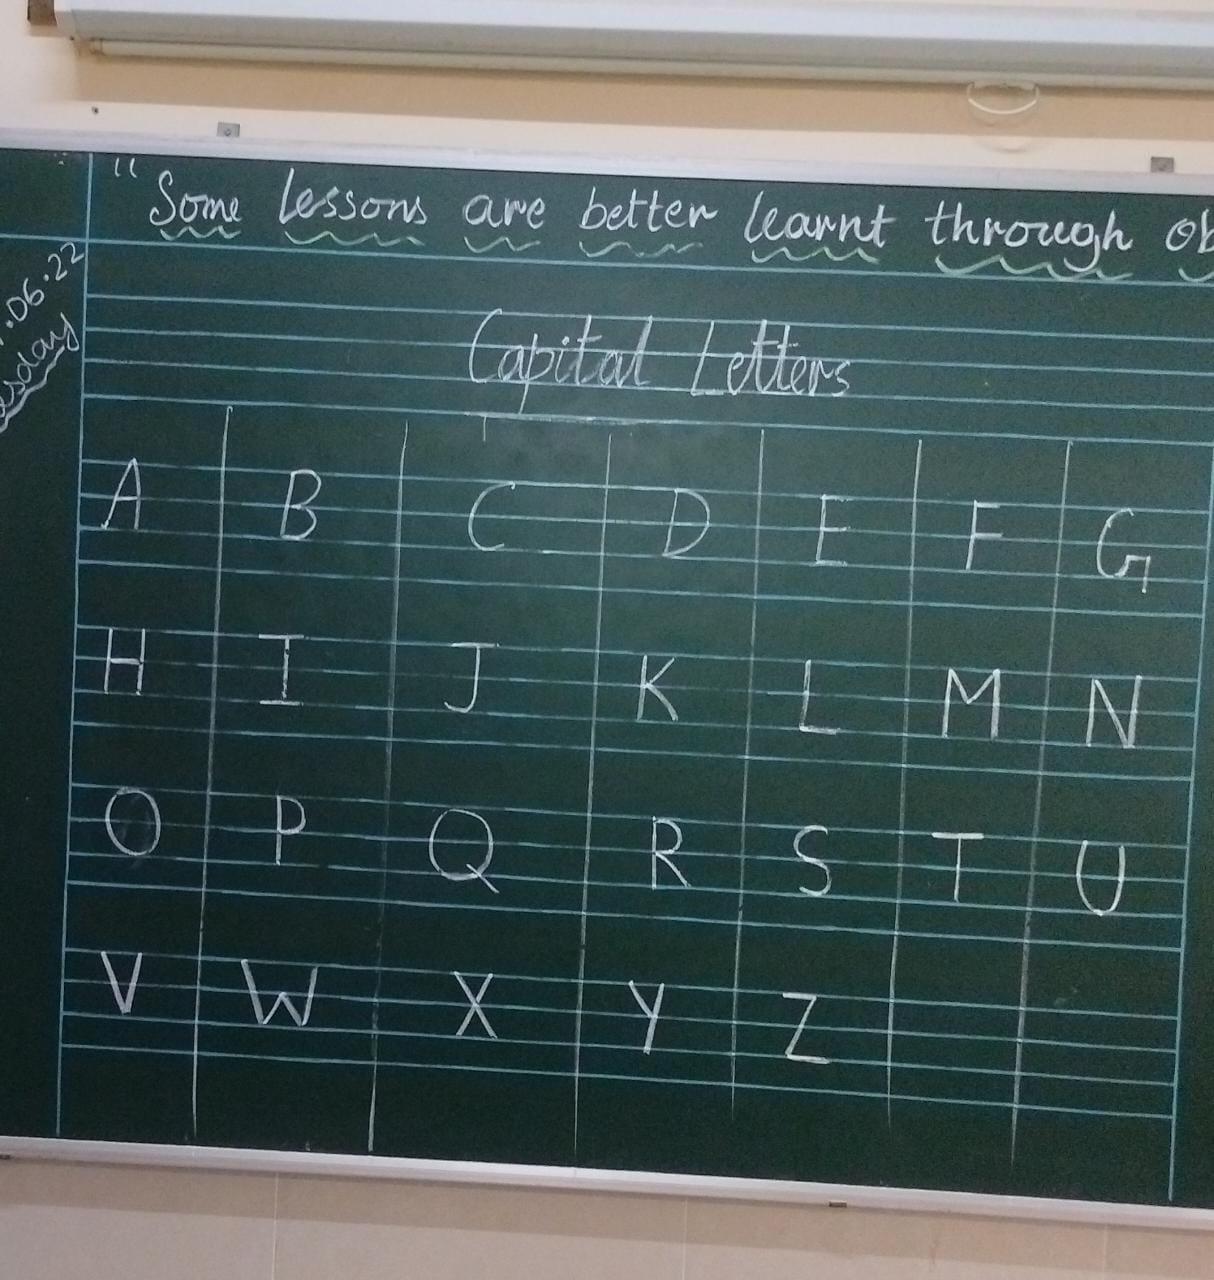 " Some lessons are better learnt through ob
.06.22
Capital Letters
A B C D E F G
H I J K L M N
O P Q R S T U
V W X Y Z